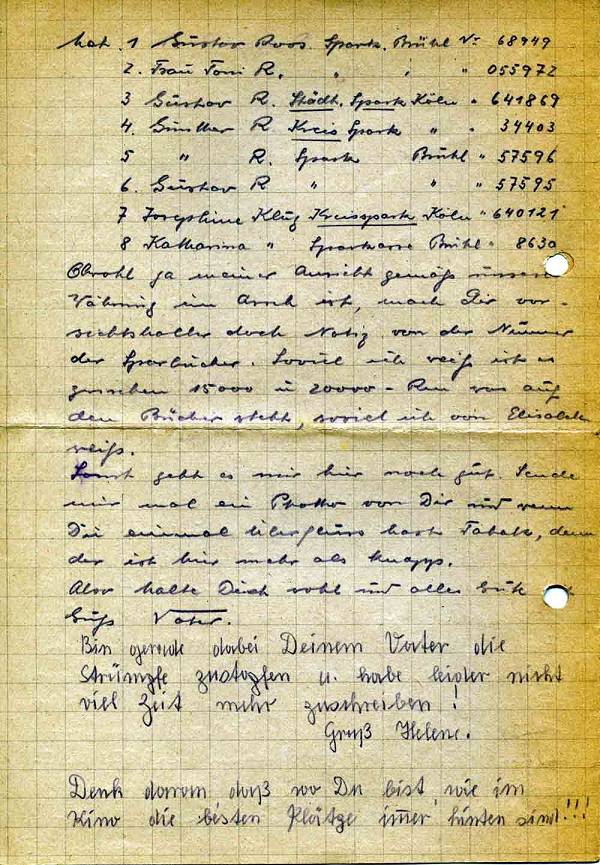 hat. 1 Gustav Roos. Spark. Brühl Nr 68949
2. Frau Toni R. " " " 055972
3 Gustav R. Städt. Spark Köln " 641869
4. Günther R Kreis Spark " " 34403
5 " R. Spark Brühl " 57596
6. Gustav R " " " 57595
7 Josephine Klug Kreisspark Köln " 640121
8 Katharina " Sparkasse Brühl " 8630
Obwohl ja meiner Ansicht gemäß unsere
Währung im Arsch ist, mach Dir vor-
sichtshalber doch Notiz von der Nummer
der Sparbücher. Soviel ich weiß ist es
zwischen 15000 u 20000 - Rm was auf
den Bücher steht, soviel ich von Elisabeth
weiß.
Sonst geht es mir hier noch gut. Sende
mir mal ein Photho von Dir und wenn
Du einmal überfluss hast Tabak, denn
der ist hier mehr als knapp.
Also halte Dich wohl und alles Gute
Gruß Vater.
Bin gerade dabei Deinem Vater die
Strümpfe zustopfen u. habe leider nicht
viel Zeit mehr zuschreiben!
Gruß Helene.
Denk daran daß wo Du bist, wie im
Kino die besten Plätze immer hinten sind!!!